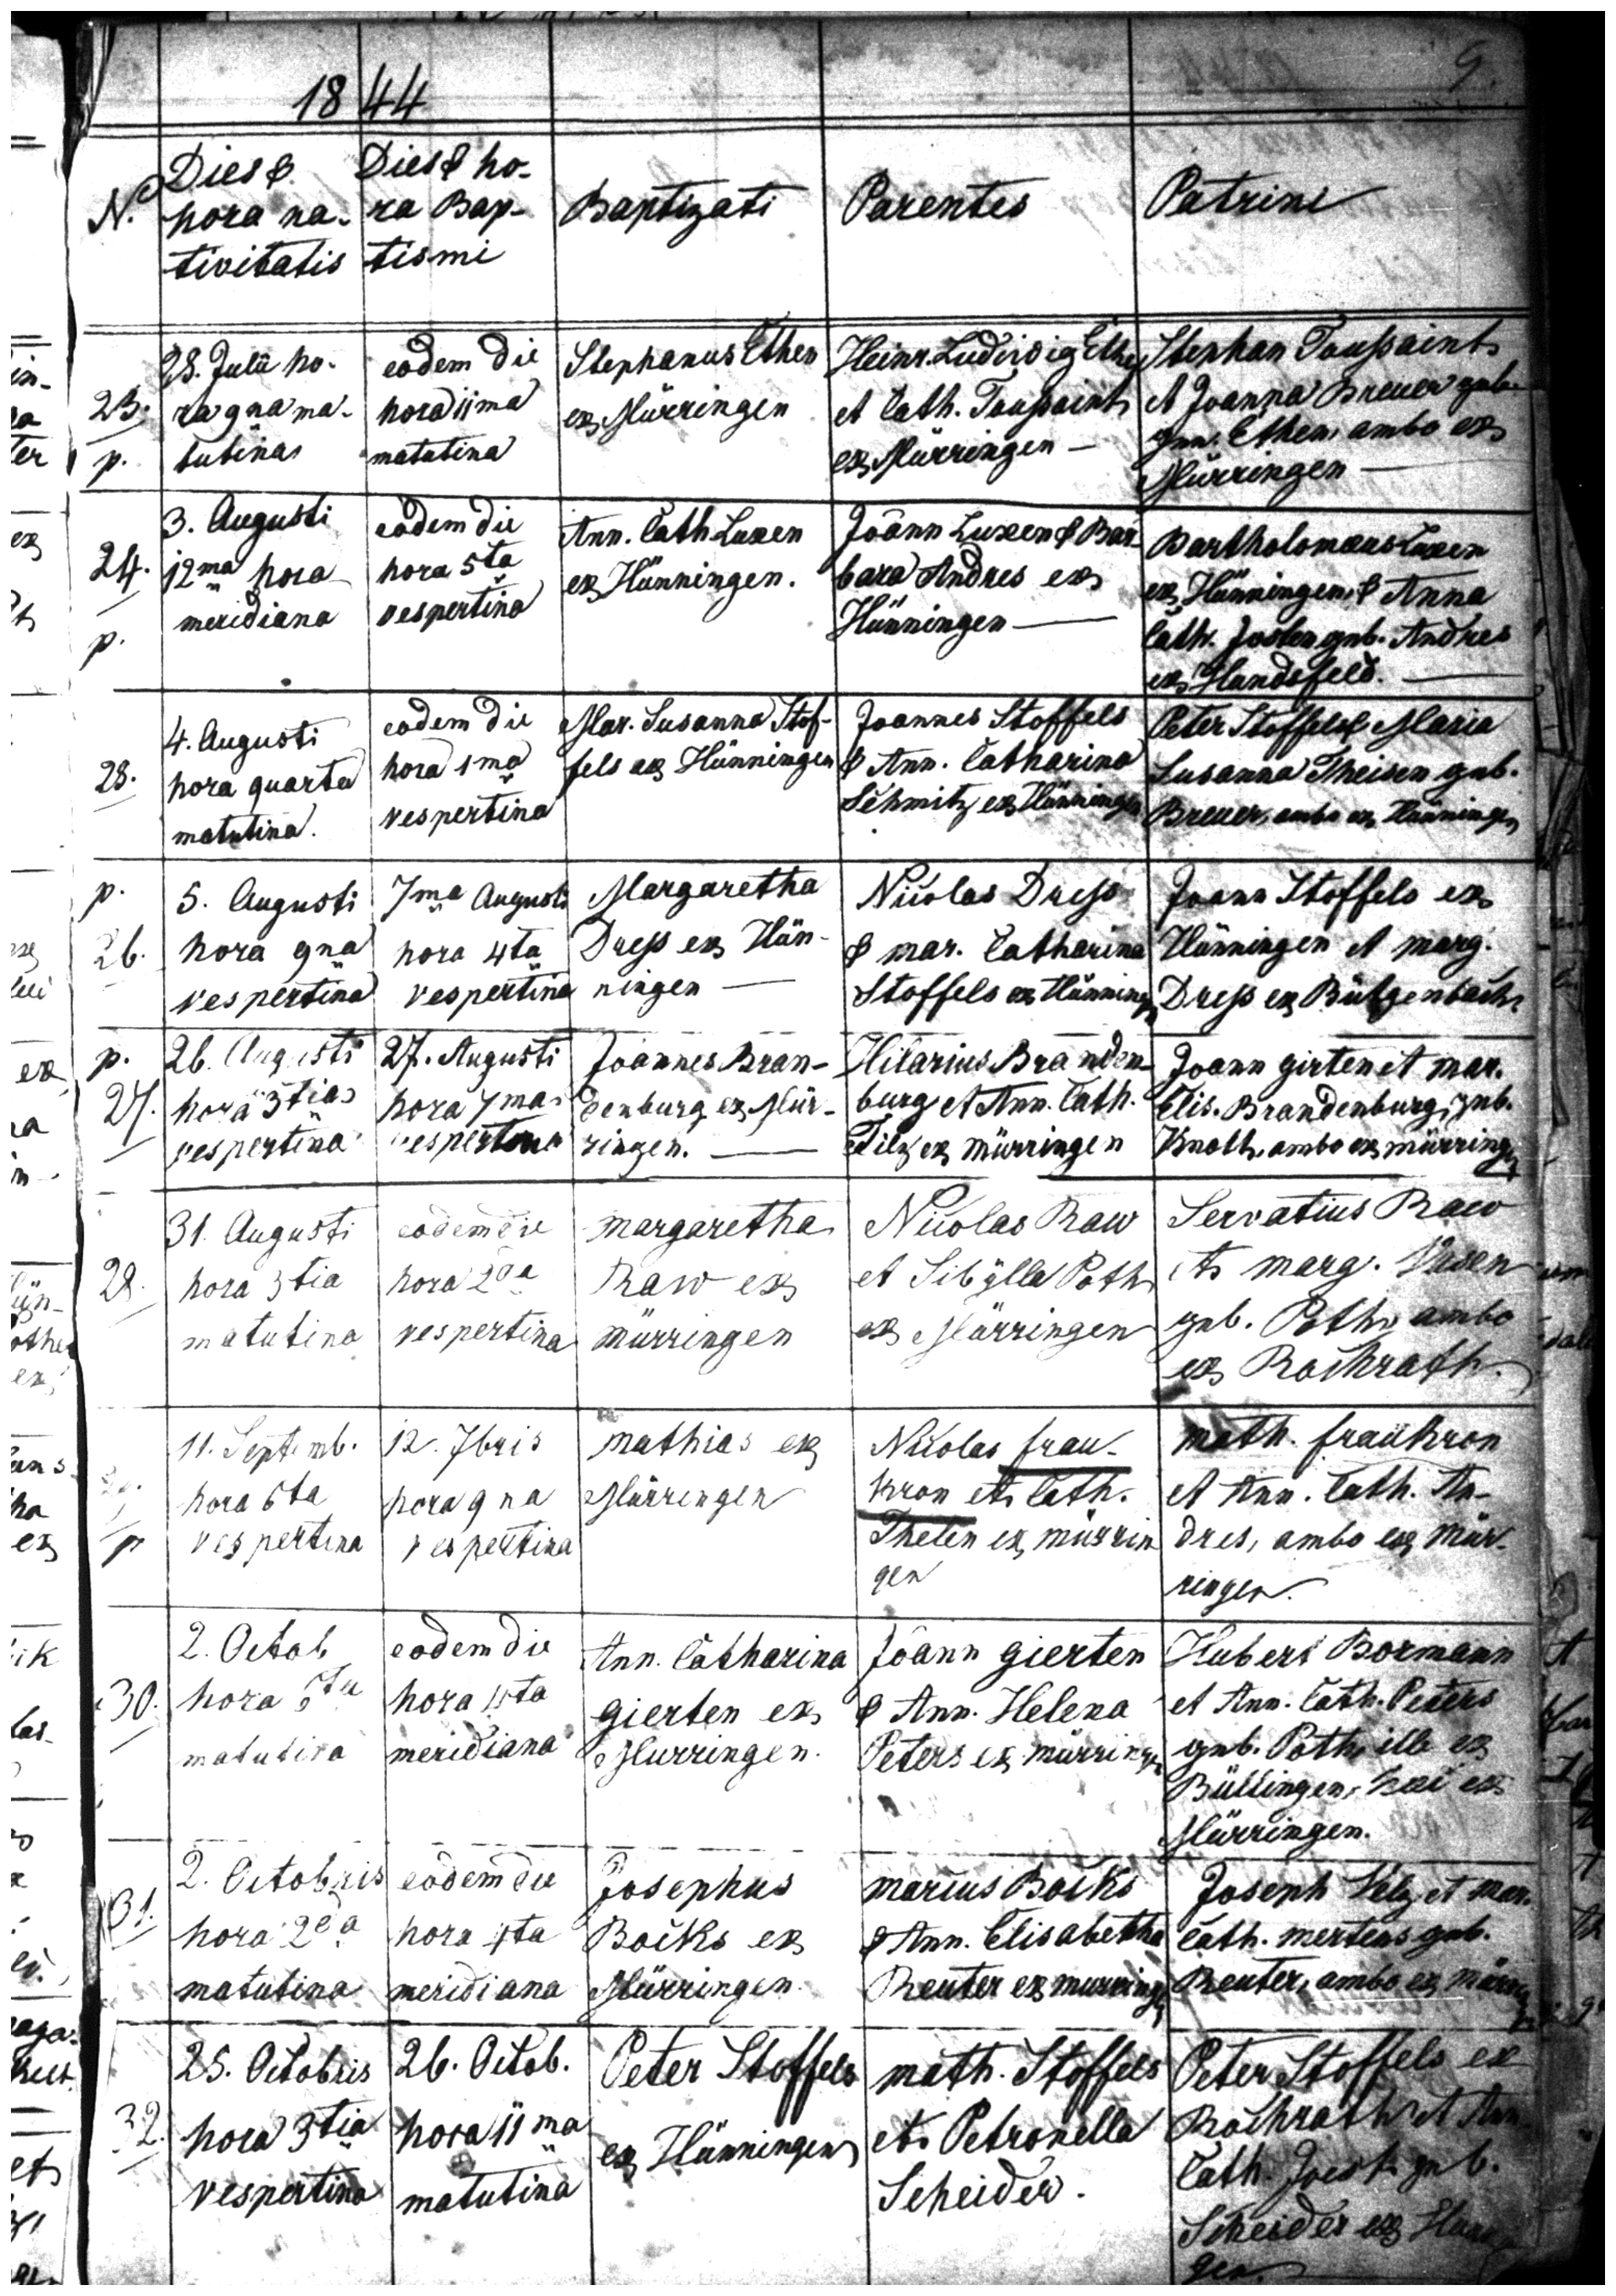 9.
1844
N.
Dies &
hora na-
tivitatis
Dies & ho-
ra Bap-
tismi
Baptizati
Parentes
Patrini
23.
p.
28. Julii ho-
ra 9na ma-
tutina
eodem die
hora 11ma
matutina
Stephanus Ethen
ex Mürringen
Heinr. Ludwig Ethen
et Cath. Toussaint
ex Mürringen —
Stephan Toussaint
et Joanna Breuer gnb.
gnn. Ethen, ambo ex
Mürringen —
24.
p.
3. Augusti
12ma hora
meridiana
eodem die
hora 5ta
vespertina
Ann. Cath Luxen
ex Hünningen.
Joann Luxen & Bar-
bara Andres ex
Hünningen —
Bartholomæus Luxen
ex Hünningen, & Anna
Cath. Josten gnb. Andres
ex Handsfeld. —
25.
4. Augusti
hora quarta
matutina.
eodem die
hora 1ma
vespertina
Mar. Susanna Stof-
fels ex Hünningen
Joannes Stoffels
& Ann. Catharina
Schmitz ex Hünningen
Peter Stoffels & Maria
Susanna Theisen gnb.
Breuer, ambo ex Hünningen
p.
26.
5. Augusti
hora 9na
vespertina
7ma Augusti
hora 4ta
vespertina
Margaretha
Dress ex Hün-
ningen —
Nicolas Dress
& mar. Catharina
Stoffels ex Hünningen
Joann Stoffels ex
Hünningen et marg.
Dress ex Bütgenbach.
p.
27.
26. Augusti
hora 3tia
vespertina
27. Augusti
hora 7ma
vespertina
Joannes Bran-
denburg ex Mür-
ringen. —
Hilarius Branden-
burg et Ann. Cath.
Filz ex mürringen
Joann girten et mar.
Elis. Brandenburg, gnb.
Knoth, ambo ex mürringen
28.
31. Augusti
hora 3tia
matutina
eodem die
hora 2da
vespertina
margaretha
Raw ex
mürringen
Nicolas Raw
et Sibÿlla Poth
ex Mürringen
Servatius Raw
et marg. Vasen
gnb. Poth, ambo
ex Rockrath.
p
11. Septemb.
hora 6ta
vespertina
12. 7bris
hora 9na
vespertina
mathias ex
Mürringen
Nicolas frau-
kron et Cath.
Thelen ex mürrin
gen
math. fraukron
et Ann. Cath. An-
dres, ambo ex Mür-
ringen.
30.
2. Octob
hora 5ta
matutina
eodem die
hora
meridiana
Ann. Catharina
gierten ex
Murringen.
Joann gierten
& Ann. Helena
Peters ex mürringen
Hubert Bormann
et Ann. Cath. Peters
gnb. Poth, ille ex
Büllingen, hæc ex
Mürringen.
31.
2. Octobris
hora 2da
matutina
eodem die
hora
meridiana
Josephus
Bocks ex
Mürringen
marius Bocks
& Ann. Elisabetha
Reuter ex murringen
Joseph Velz et mar.
Cath. mertens gnb.
Reuter, ambo ex mürringen
32.
25. Octobris
hora 3tia
vespertina
26. Octob.
hora 11ma
matutina
Peter Stoffels
ex Hünningen
math. Stoffels
et Petronella
Scheider.
Peter Stoffels ex
Rockrath et Ann.
Cath. Joest gnb.
Scheider ex
gen.